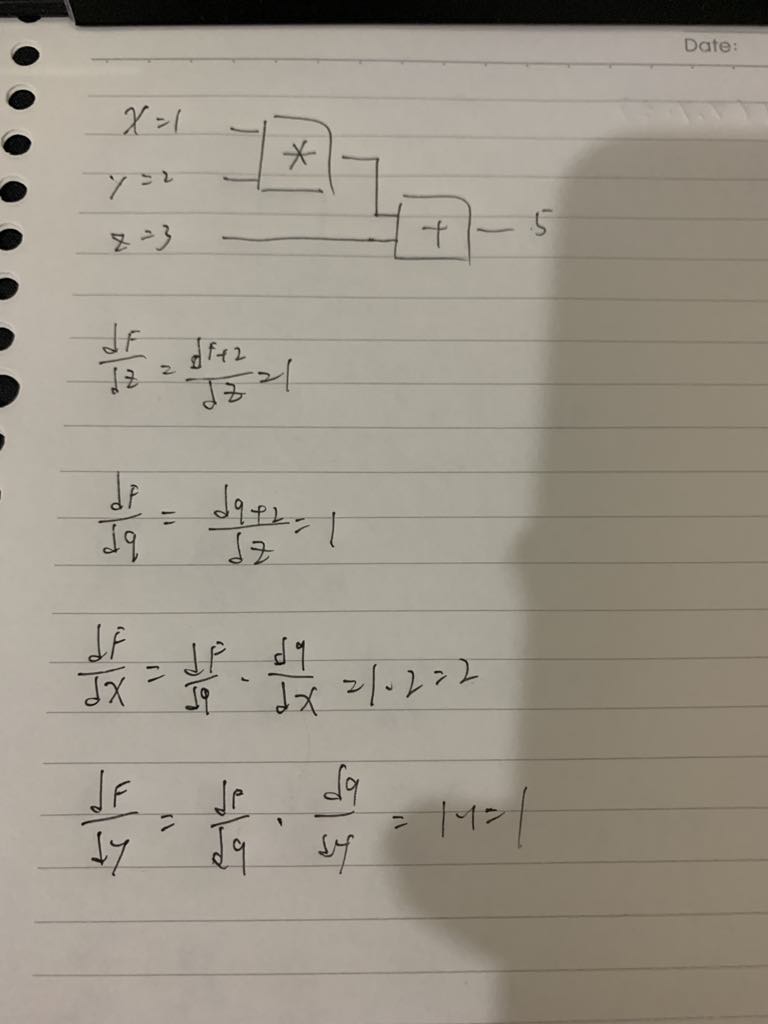 Date:
x=1
*
y=2
z=3
+
5
dF/dz = dF+2/dz = 1
dF/dq = dq+2/dz = 1
dF/dx = dF/dq · dq/dx = 1·2=2
dF/dy = dF/dq · dq/dy = 1·1=1